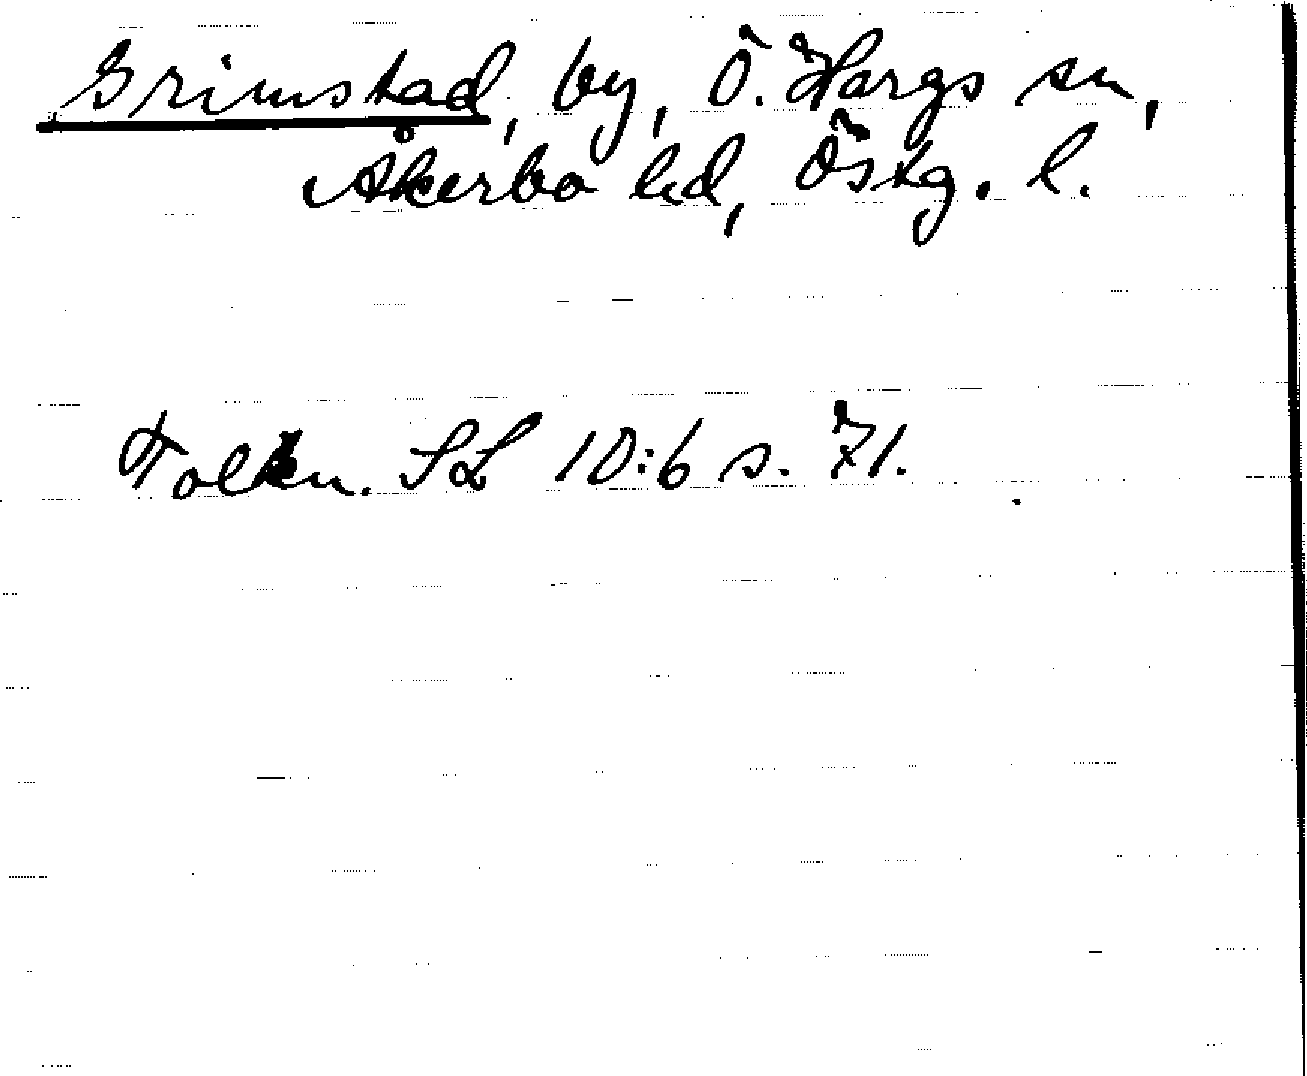 Grimstad, by, Ö. Hargs sn,
Åkerbo hd, Östg. l.
Folkn. SL 10:6 s. 71.